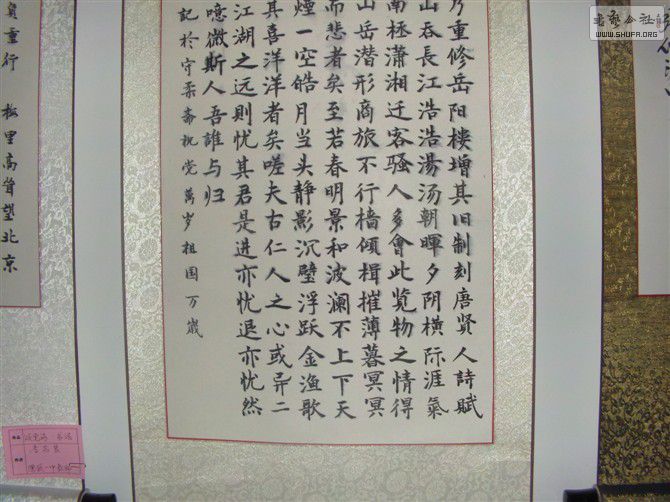 乃重修岳阳楼增其旧制刻唐贤人詩賦
山吞長江浩浩湯汤朝暉夕阴横际涯氣
南極潇湘迁客骚人多會此览物之情得
山岳潜形商旅不行樯傾楫摧薄暮冥冥
而悲者矣至若春明景和波澜不上下天
煙一空皓月当头静影沉璧浮跃金渔歌
其喜洋洋者矣嗟夫古仁人之心或异二
江湖之远则忧其君是进亦忧退亦忧然
噫微斯人吾誰与归
記於守柔斋祝党萬岁祖国万嵗
負重行 里高 望北京
書藝公社
WWW.SHUFA.ORG